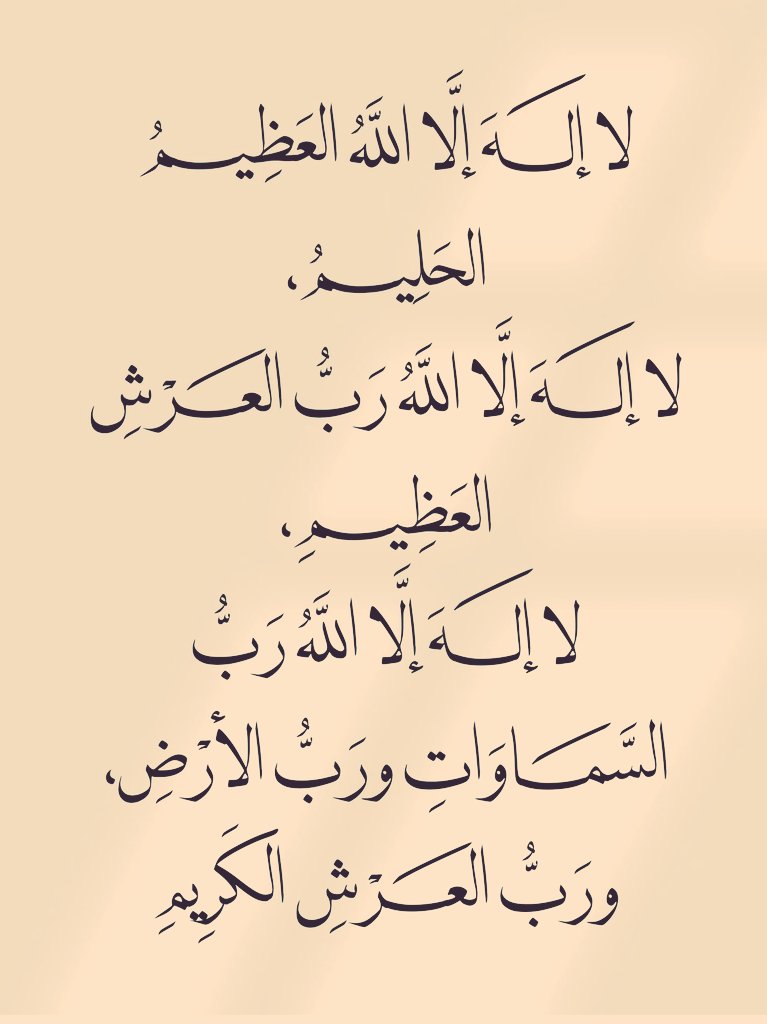 لا إلَـهَ إلَّا اللَّهُ العَظِيـمُ
الحَلِيـمُ،
لا إلَـهَ إلَّا اللَّهُ رَبُّ العَـرْشِ
العَظِيـمِ،
لا إلَـهَ إلَّا اللَّهُ رَبُّ
السَّمَـاوَاتِ ورَبُّ الأرْضِ،
ورَبُّ العَـرْشِ الكَرِيمِ